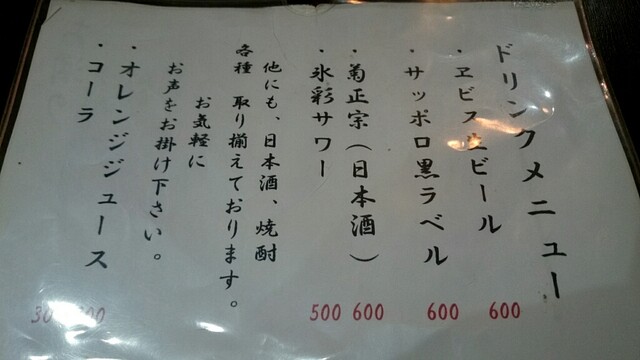 ドリンクメニュー
・ヱビス生ビール 600
・サッポロ黒ラベル 600
・菊正宗(日本酒) 600
・氷彩サワー 500
他にも、日本酒、焼酎
各種 取り揃えております。
お気軽に
お声をお掛け下さい。
・オレンジジュース
・コーラ